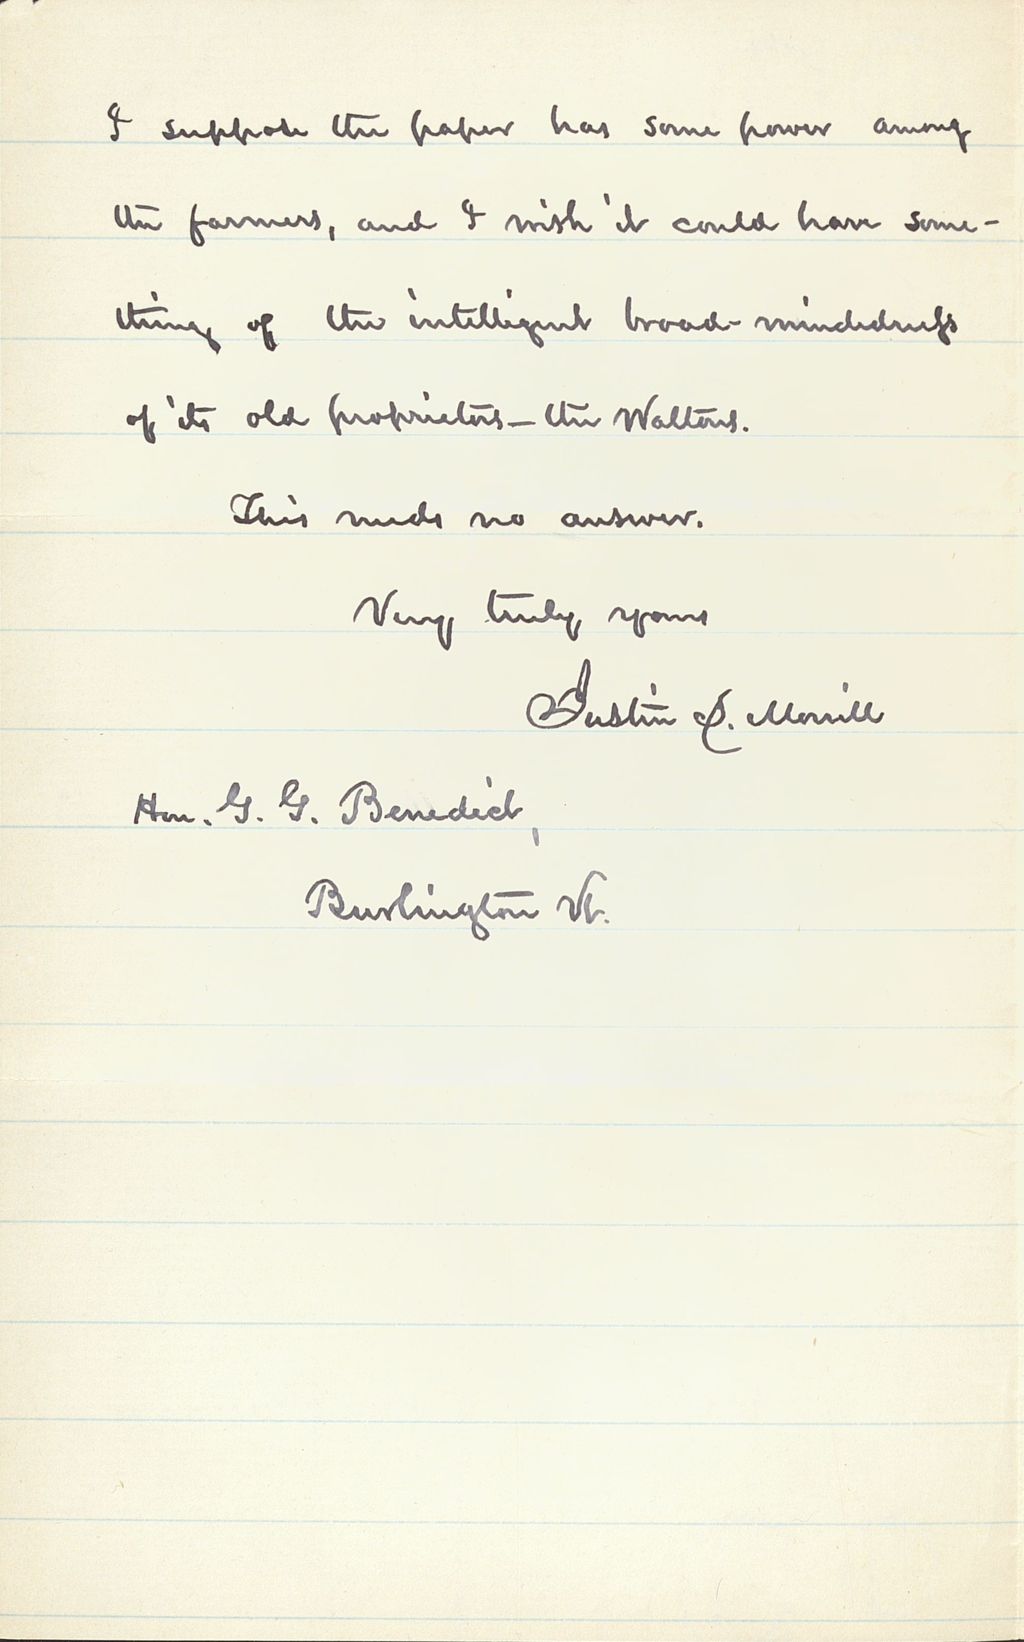 I suppose the paper has some power among
the farmers, and I wish it could have some-
thing of the intelligent broad-mindedness
of its old proprietors — the Waltons.
This needs no answer.
Very truly yours
Justin S. Morrill
Hon. G. G. Benedict,
Burlington Vt.